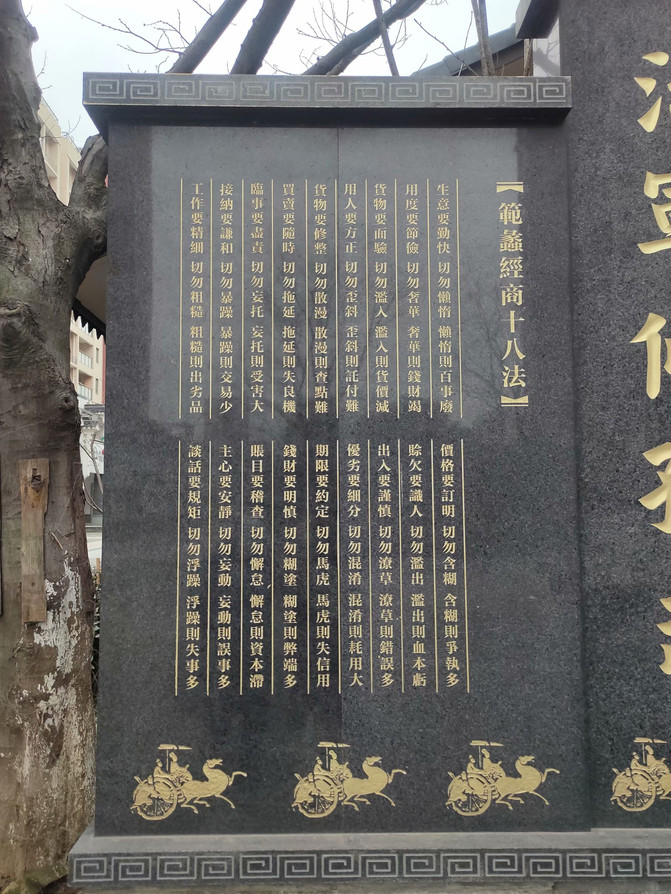 【範蠡經商十八法】
生意要勤快 切勿懶惰 懶惰則百事廢
用度要節儉 切勿奢華 奢華則錢財竭
貨物要面驗 切勿濫入 濫入則貨價減
用人要方正 切勿歪斜 歪斜則託付難
貨物要修整 切勿散漫 散漫則查點難
買賣要隨時 切勿拖延 拖延則失良機
臨事要盡責 切勿妄托 妄托則受害大
接納要謙和 切勿暴躁 暴躁則交易少
工作要精細 切勿粗糙 粗糙則出劣品
價格要訂明 切勿含糊 含糊則爭執多
賒欠要識人 切勿濫出 濫出則血本虧
出入要謹慎 切勿潦草 潦草則錯誤多
優劣要細分 切勿混淆 混淆則耗用大
期限要約定 切勿馬虎 馬虎則失信用
錢財要明慎 切勿糊塗 糊塗則弊端多
賬目要稽查 切勿懈怠 懈怠則資本滯
主心要安靜 切勿妄動 妄動則誤事多
談話要規矩 切勿浮躁 浮躁則失事多